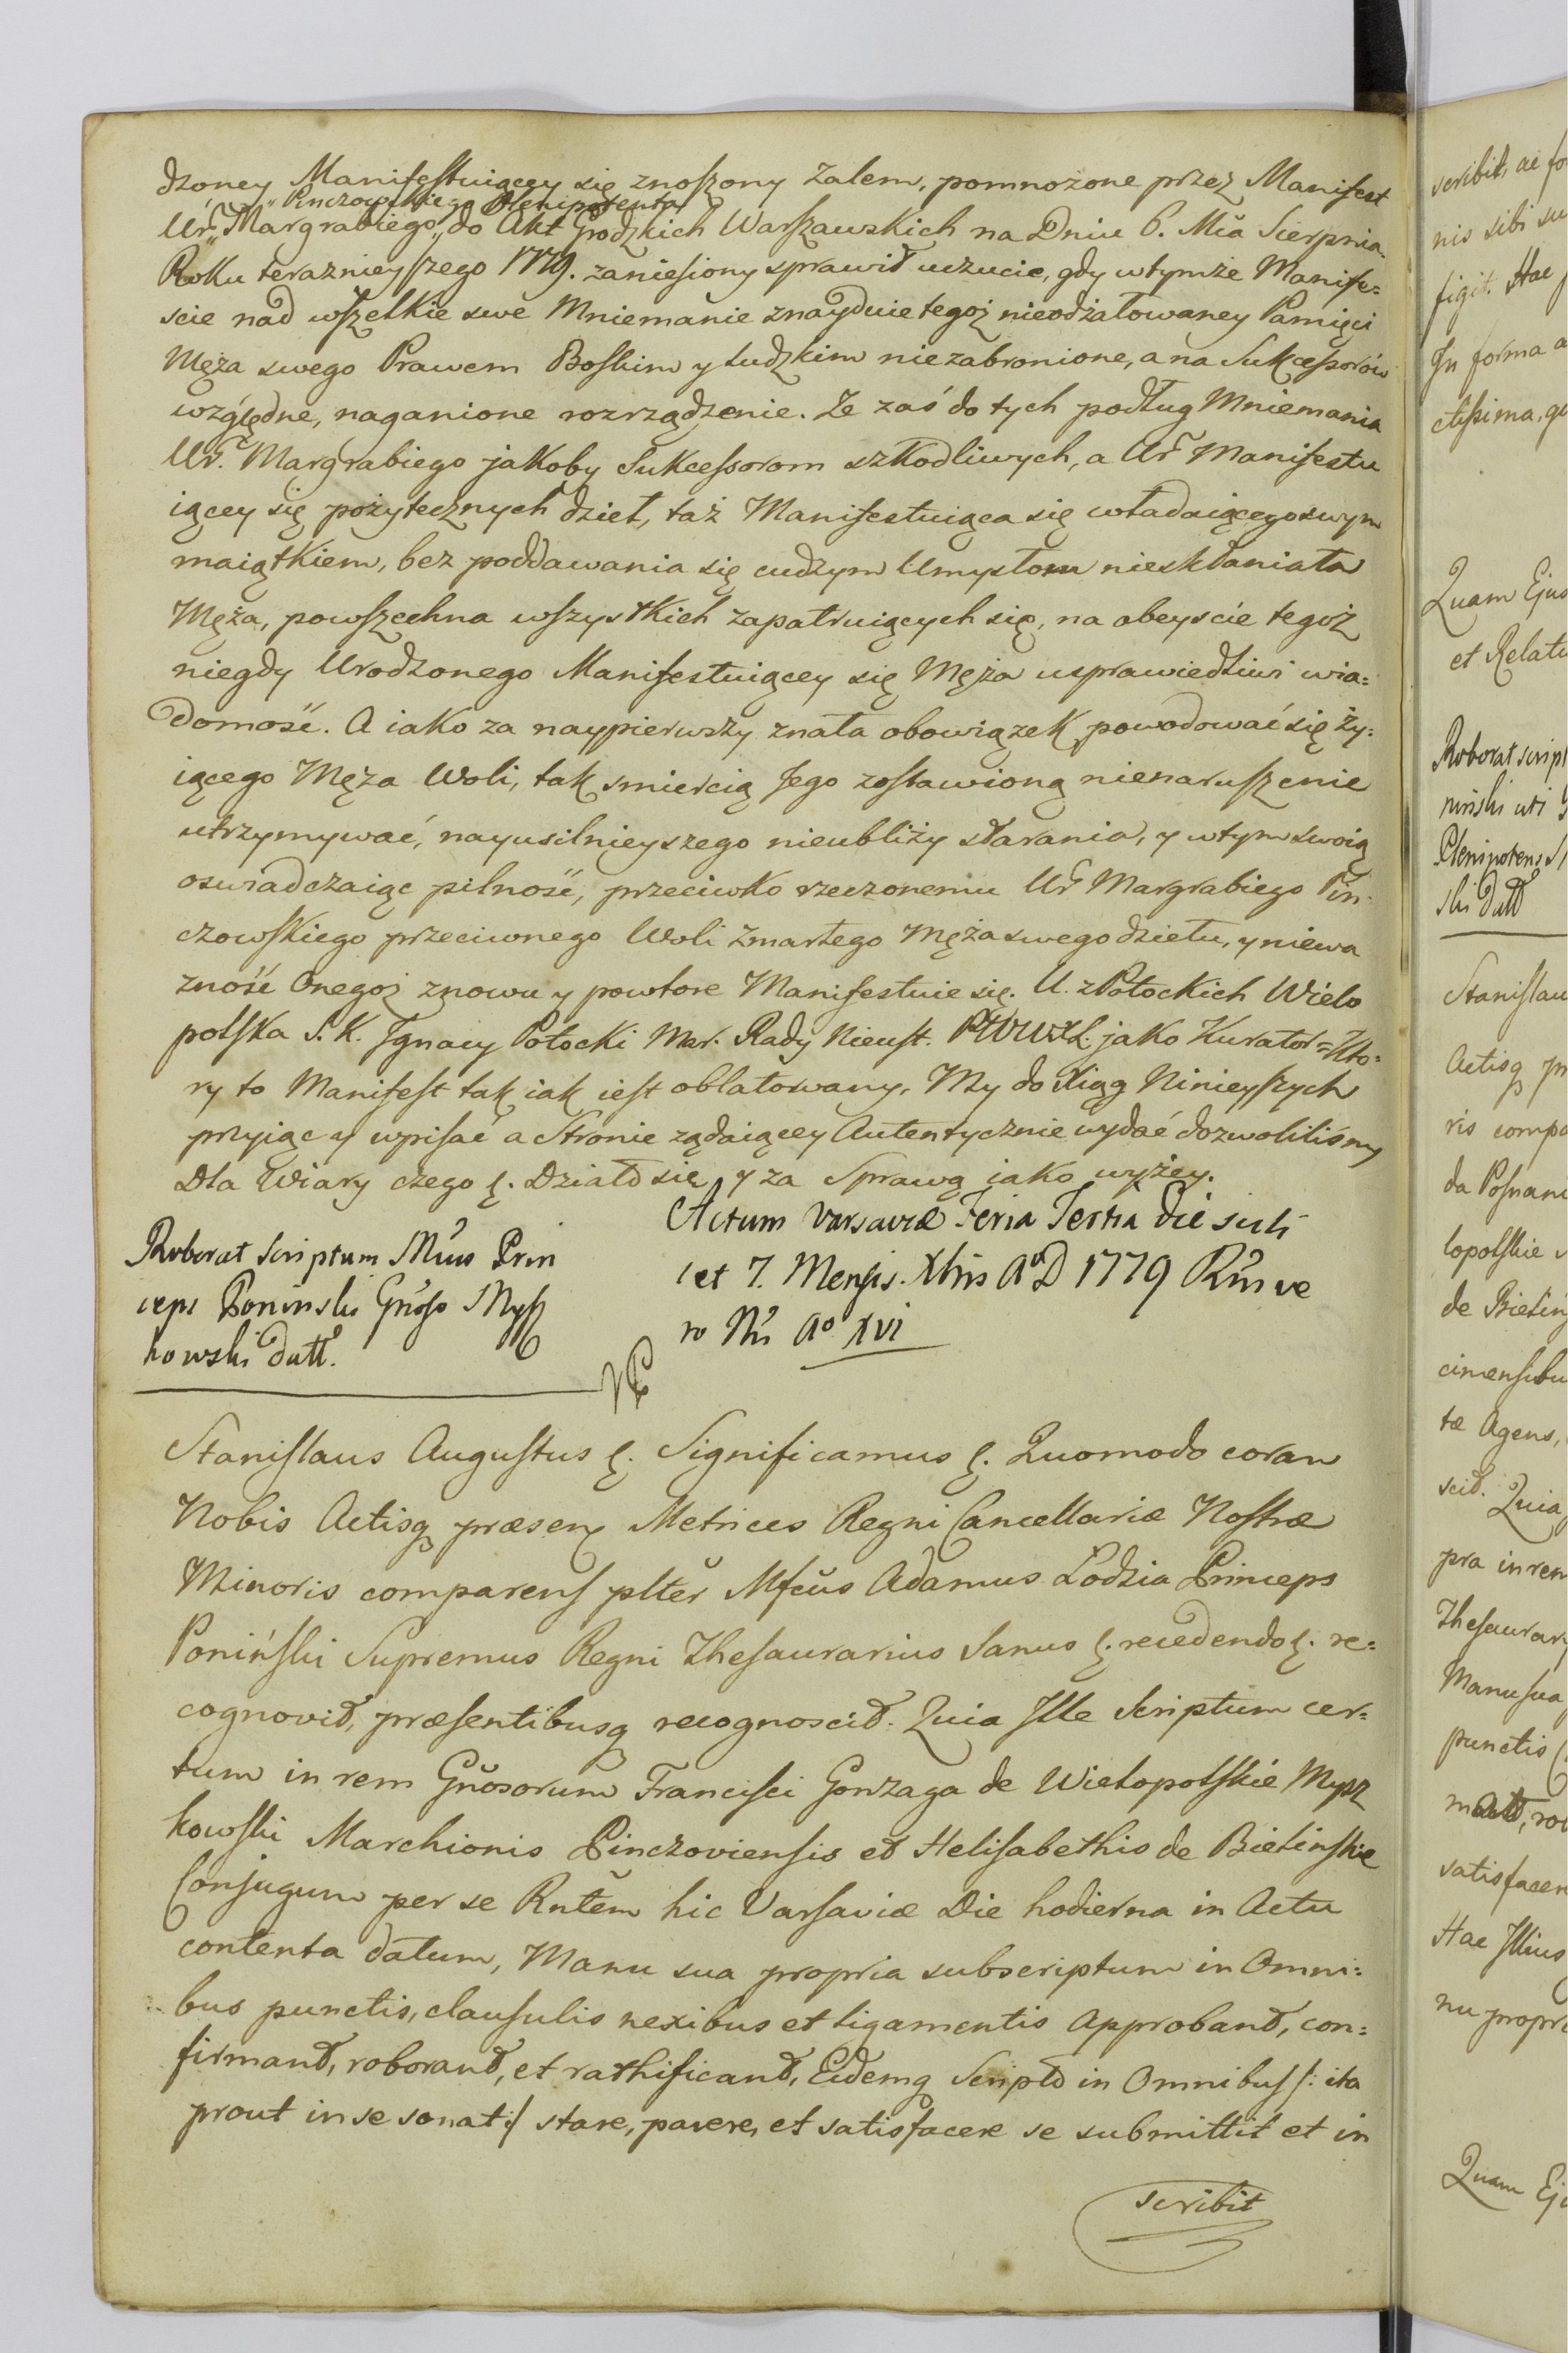 dzoney Manifestuiącey się znoszony żalem, pomnożone przez Manifest
„Pinczowskiego Plenipotenta
Ur̃. Margrabiego „do Akt Grodzkich Warszawskich na Dniu 6. Mca Sierpnia
Roku terazniejszego 1779. zaniesiony sprawił uczucie, gdy wtymże Manife=
scie nad wszelkie swe Mniemanie znayduie tegoż nieodżałowaney Pamięci
Męża swego Prawem Boskim y ludzkim niezabronione, a na Sukcessorow
względne, naganione rozrządzenie. Ze zaś do tych podług Mniemania
Ur̃. Margrabiego jakoby Sukcessorom szkodliwych, a Ur̃ Manifestu
iącey się pożytecznych dzieł, taż Manifestuiąca się władaiącego swym
maiątkiem, bez poddawania się cudzym Umysłom niesklaniała
Męża, powszechna wszystkich zapatruiących się, na obeyscie tegoż
niegdy Urodzonego Manifestuiącey się Męża usprawiedliwi wia=
domość. A iako za naypierwszy znała obowiązek powodować się ży=
iącego Męża Woli, tak smiercią Jego zostawioną nienaruszenie
utrzymywać, nayusilnieyszego nieubliży starania, y wtym swoią
oswiadczaiąc pilność, przeciwko rzeczonemu Ur̃ Margrabiego Pin
czowskiego przeciwnego Woli Zmarłego Męża swego dziełu, y niewa
zność Onegoż znowu y powtore Manifestuie się. U. z Potockich Wielo
polska S. K. Ignacy Potocki Mar. Rady Nieust. PWWXL. jako Kurator = Kto=
ry to Manifest tak iak iest oblatowany, My do Xiąg Ninieyszych
przyiąc y wpisać a Stronie żądaiącey Autentycznie wydać dozwoliliśmy
Dla Wiary czego ꝛ. Działo się y za Sprawą iako wyżey.
Actum Varsaviæ Feria Tertia die scili
cet 7. Mensis Xbris A°D 1779 Rñi ve
ro Nri A° XVI
Roborat scriptum Mcus Prin
ceps Poninski Gnoso Mysz
kowski datt.
Stanislaus Augustus ꝛ. Significamus ꝛ. Quomodo coram
Nobis Actisq̃ præsenꝫ Metrices Regni Cancellariæ Nostræ
Minoris comparens plter Mfcus Adamus Lodzia Princeps
Poniński Supremus Regni Thesaurarius Sanus ꝛ. recedendo ꝛ. re=
cognovit, præsentibusq̃ recognoscit. Quia Ille Scriptum cer=
tum in rem Gnosorum Francisci Gonzaga de Wielopolskie Mysz
kowski Marchionis Pinczoviensis et Helisabethis de Bielinskie
Conjugum per se Rntem hic Varsaviæ Die hodierna in Actu
contenta datum, Manu sua propria subscriptum in Omni=
bus punctis, clausulis nexibus et ligamentis Approband, con=
firmand, roborand, et rathificand, Eidemq̃ Scripto in Omnibus /: ita
prout in se sonat :/ stare, parere, et satisfacere se submittit et in
scribit
scribit, ac
nis sibi
figit. Hac
In forma
Quam Ejus
et Relati
Roborat script
niński uti
Plenipotens
ski datt
Stanislau
Actisq̃
ris compa
da Posnani
lopolskie
de Bieliń
cimensibu
tæ Agens,
scit. Quia
pra in rem
Thesaurary
Manu sua
punctis
satisfacen
Hac Illius
nu propri
Quam Ej